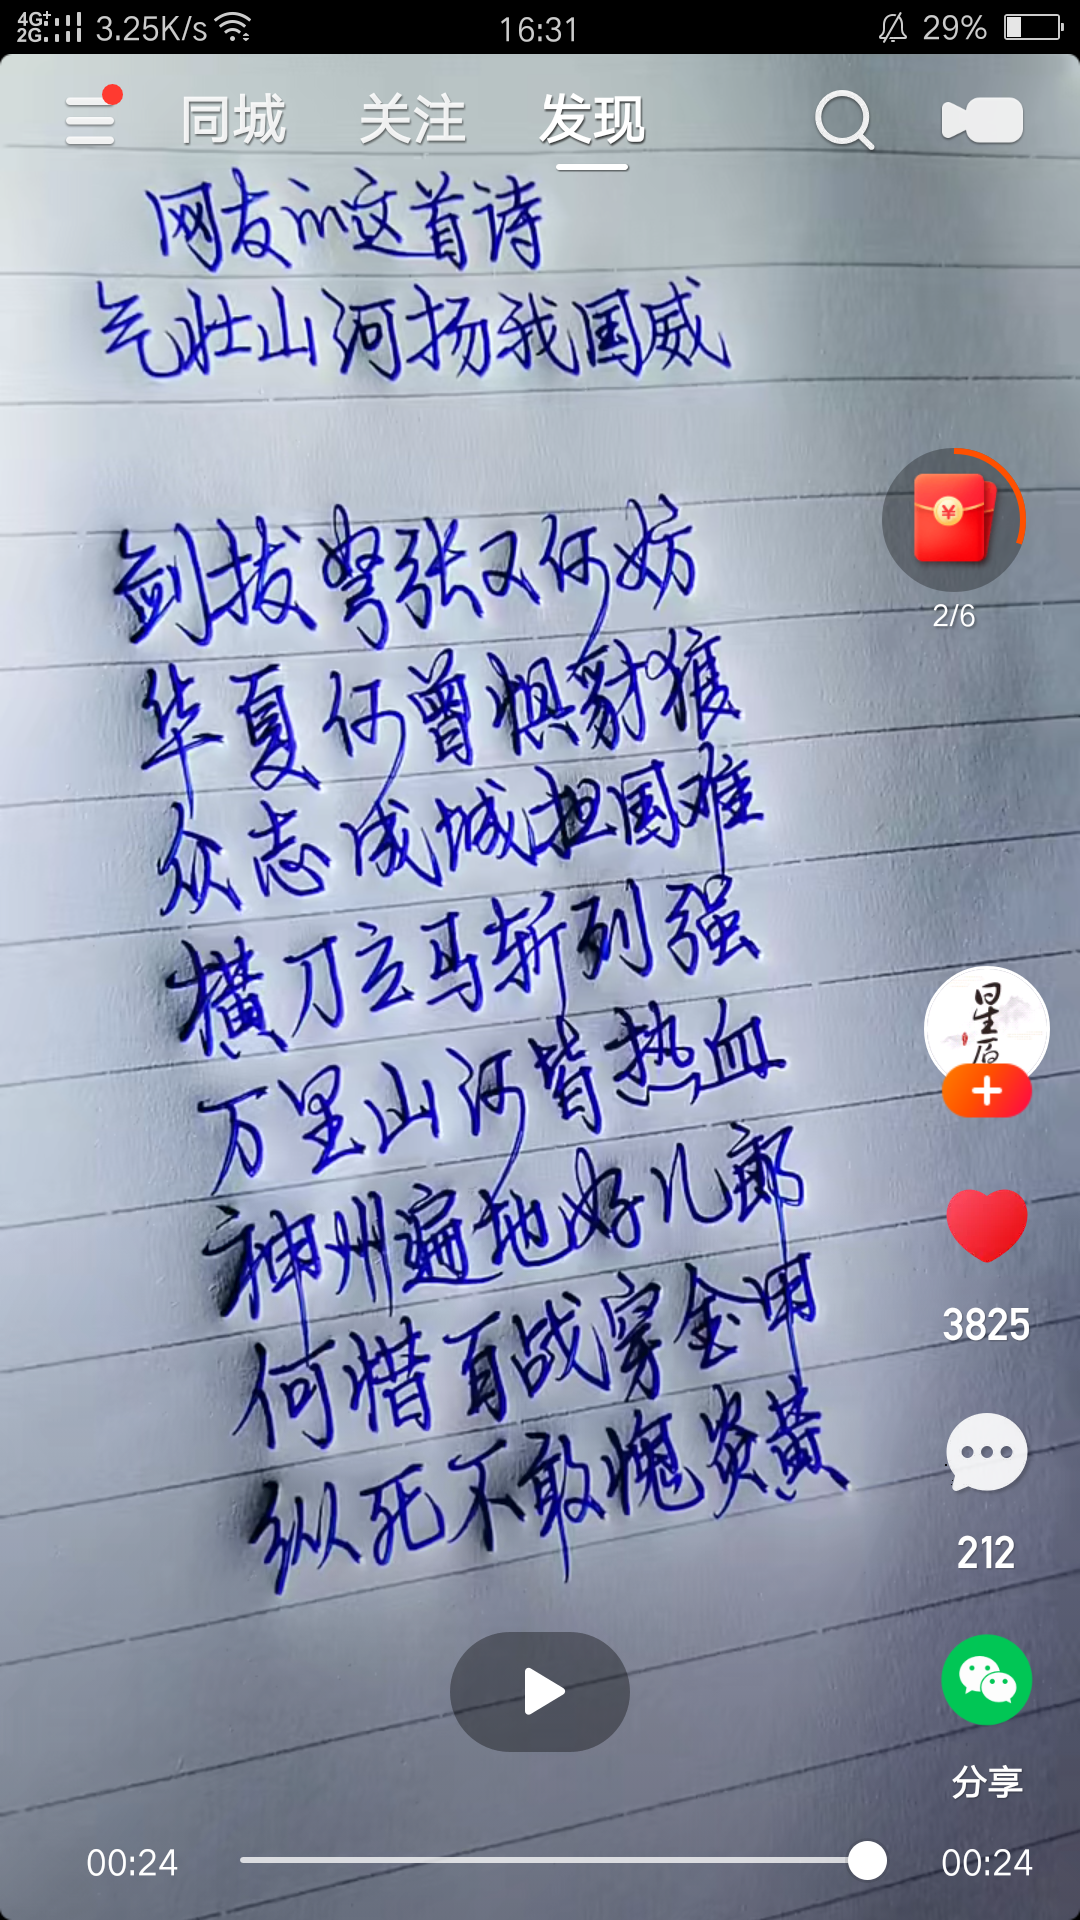 4G+ 2G 3.25K/s 16:31 29%
同城 关注 发现
网友的这首诗
气壮山河扬我国威
2/6
剑拔弩张又何妨
华夏何曾惧豺狼
众志成城担国难
横刀立马斩列强
万里山河皆热血
神州遍地好儿郎
何惜百战穿金甲
纵死不敢愧炎黄
3825
212
分享
00:24 00:24